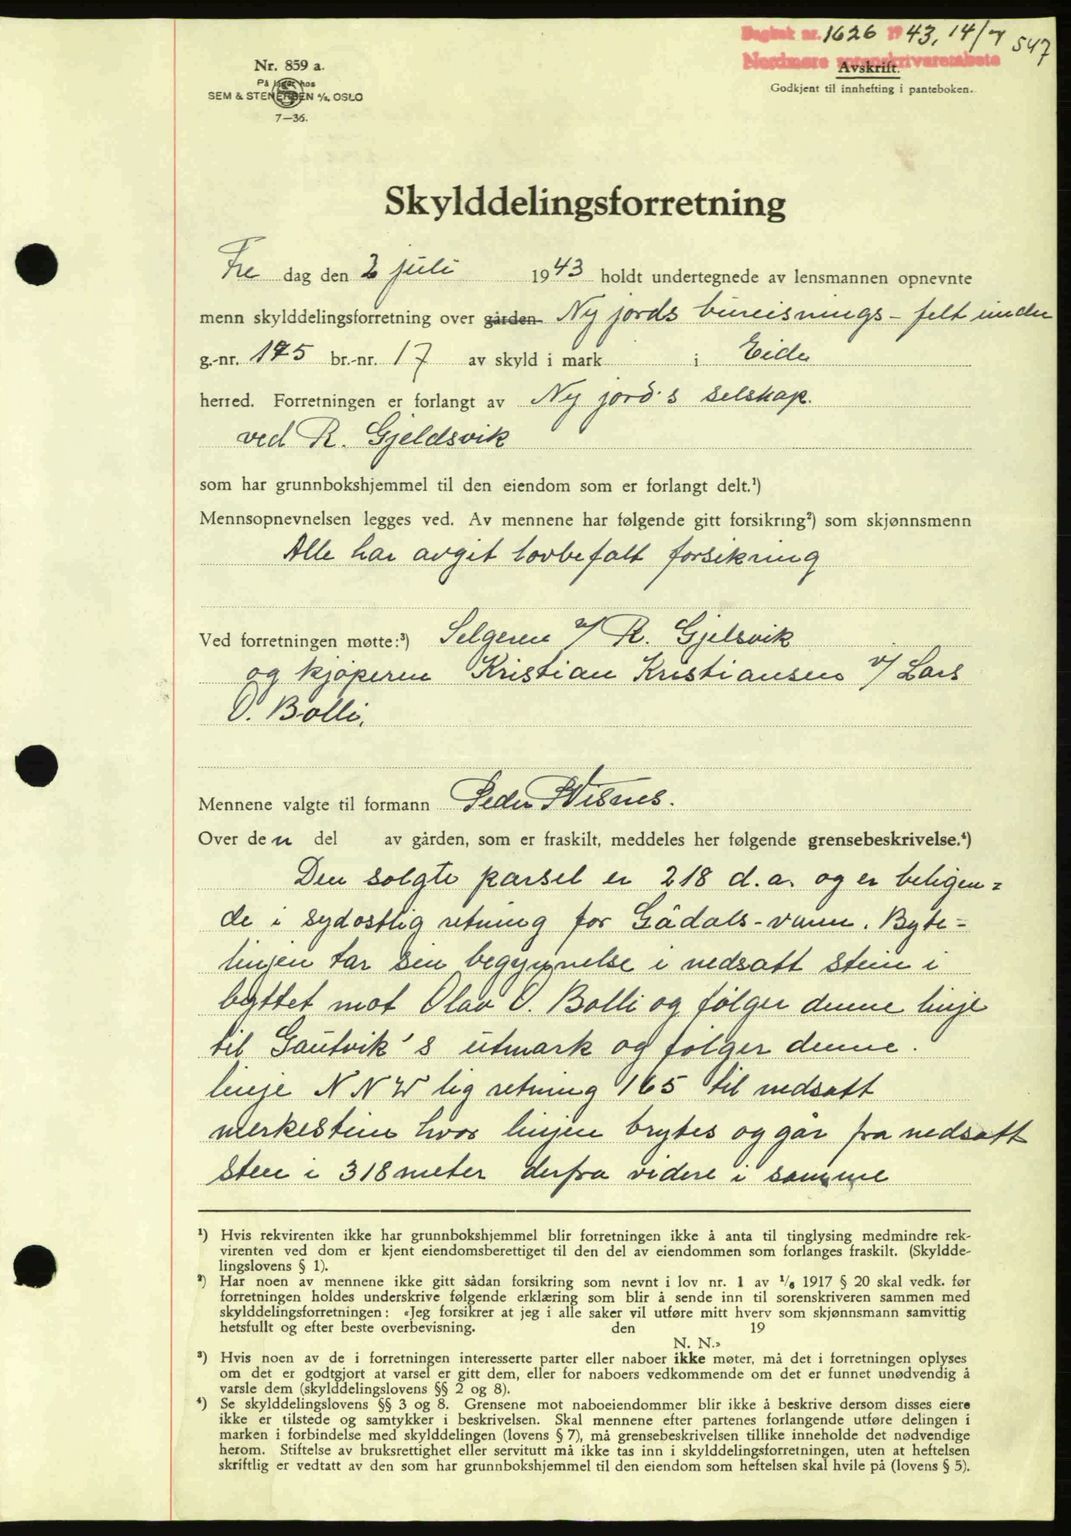 Dagbok nr. 1626 1943, 14/7 547
Nordmøre sorenskriverembete
Nr. 859 a.
På lager hos
SEM & STENERSEN A/S, OSLO
7—36.
Avskrift.
Godkjent til innhefting i panteboken.
Skylddelingsforretning
Fre dag den 2 juli 1943 holdt undertegnede av lensmannen opnevnte
menn skylddelingsforretning over gården Ny jords bureisnings-felt under
g.-nr. 175 br.-nr. 17 av skyld i mark i Eide
herred. Forretningen er forlangt av Ny jord's selskap.
ved R. Gjeldsvik
som har grunnbokshjemmel til den eiendom som er forlangt delt.¹)
Mennsopnevnelsen legges ved. Av mennene har følgende gitt forsikring²) som skjønnsmenn
Alle har avgit lovbefalt forsikring
Ved forretningen møtte:³) Selgeren v/ R. Gjelsvik
og kjøperen Kristian Kristiansen v/ Lars
O. Bolli.
Mennene valgte til formann Peder Visnes.
Over den del av gården, som er fraskilt, meddeles her følgende grensebeskrivelse.⁴)
Den solgte parsel er 218 d.a. og er beligen=
de i sydostlig retning for Gådals-vann. Byte=
linjen tar sin begynnelse i nedsatt stein i
byttet mot Olav O. Bolli og følger denne linje
til Gautvik's utmark og følger denne.
linje N N W lig retning 165 til nedsatt
merkestein hvor linjen brytes og går fra nedsatt
sten i 318 meter derfra videre i samme
¹) Hvis rekvirenten ikke har grunnbokshjemmel blir forretningen ikke å anta til tinglysing medmindre rek-
virenten ved dom er kjent eiendomsberettiget til den del av eiendommen som forlanges fraskilt. (Skyldde-
lingslovens § 1).
²) Har noen av mennene ikke gitt sådan forsikring som nevnt i lov nr. 1 av 1/6 1917 § 20 skal vedk. før
forretningen holdes underskrive følgende erklæring som blir å sende inn til sorenskriveren sammen med
skylddelingsforretningen: «Jeg forsikrer at jeg i alle saker vil utføre mitt hverv som skjønnsmann samvittig
hetsfullt og efter beste overbevisning. den 19
N. N.»
³) Hvis noen av de i forretningen interesserte parter eller naboer ikke møter, må det i forretningen oplyses
om det er godtgjort at varsel er gitt dem, eller for naboers vedkommende om det er funnet unødvendig å
varsle dem (skylddelingslovens §§ 2 og 8).
⁴) Se skylddelingslovens §§ 3 og 8. Grensene mot naboeiendommer blir ikke å beskrive dersom disses eiere
ikke er tilstede og samtykker i beskrivelsen. Skal mennene efter partenes forlangende utføre delingen i
marken i forbindelse med skylddelingen (lovens § 7), må grensebeskrivelsen tillike inneholde det nødvendige
herom. Stiftelse av bruksrettighet eller servitutt må ikke tas inn i skylddelingsforretningen, uten at heftelsen
skriftlig er vedtatt av den som har grunnbokshjemmel til den eiendom som heftelsen skal hvile på (lovens § 5).